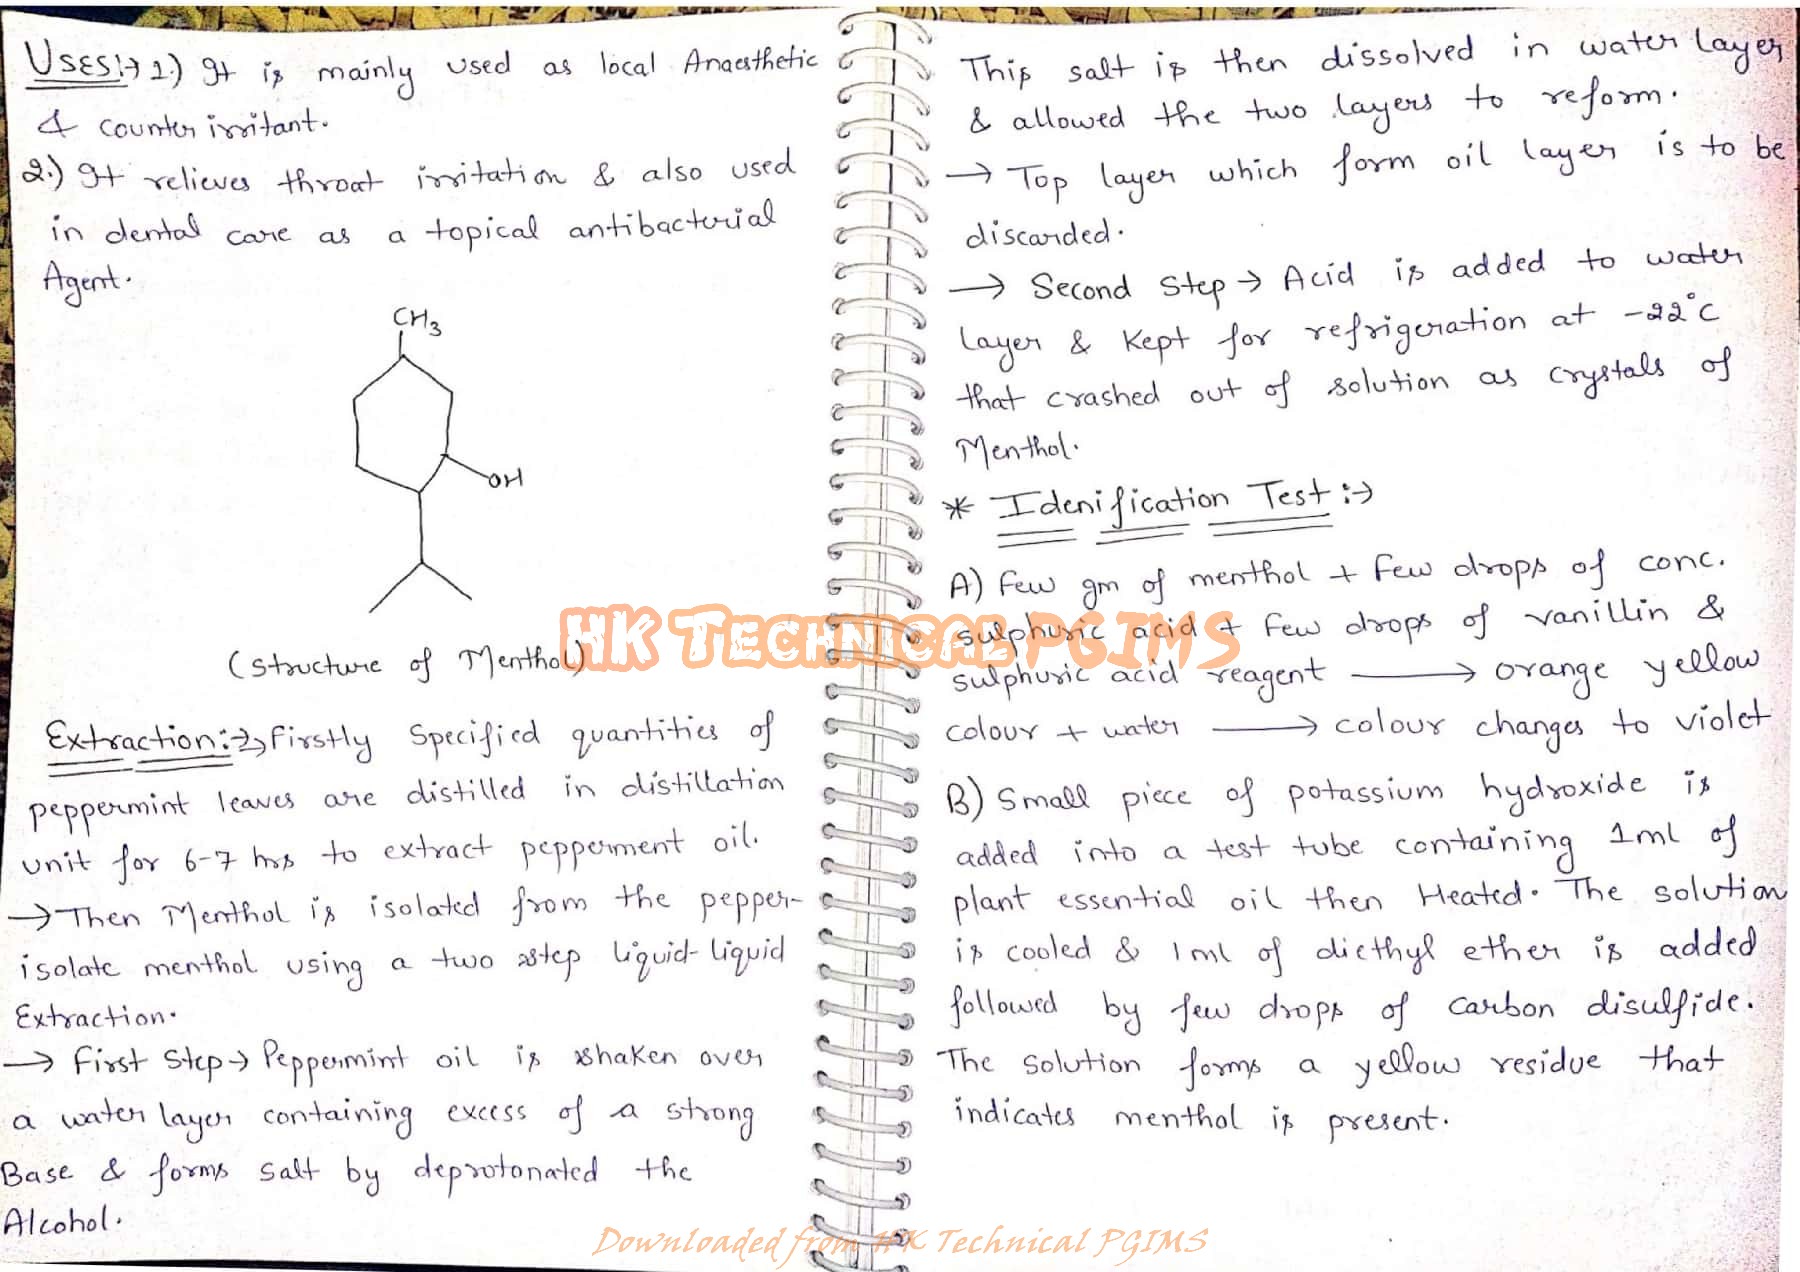 Uses:→ 1.) It is mainly used as local Anaesthetic
& counter irritant.
2.) It relieves throat irritation & also used
in dental care as a topical antibacterial
Agent.
CH3
OH
(structure of Menthol)
Extraction:→ Firstly Specified quantities of
peppermint leaves are distilled in distillation
unit for 6-7 hrs to extract pepperment oil.
→ Then Menthol is isolated from the pepper-
isolate menthol using a two step liquid-liquid
Extraction.
→ First Step → Peppermint oil is shaken over
a water layer containing excess of a strong
Base & forms salt by deprotonated the
Alcohol.
This salt is then dissolved in water layer
& allowed the two layers to reform.
→ Top layer which form oil layer is to be
discarded.
→ Second Step → Acid is added to water
layer & Kept for refrigeration at -22°C
that crashed out of solution as crystals of
Menthol.
* Idenification Test :→
A) Few gm of menthol + Few drops of conc.
sulphuric acid + Few drops of vanillin &
sulphuric acid reagent → orange yellow
colour + water → colour changes to violet
B) Small piece of potassium hydroxide is
added into a test tube containing 1ml of
plant essential oil then Heated. The solution
is cooled & 1ml of diethyl ether is added
followed by few drops of carbon disulfide.
The solution forms a yellow residue that
indicates menthol is present.
HK Technical PGIMS
Downloaded from HK Technical PGIMS